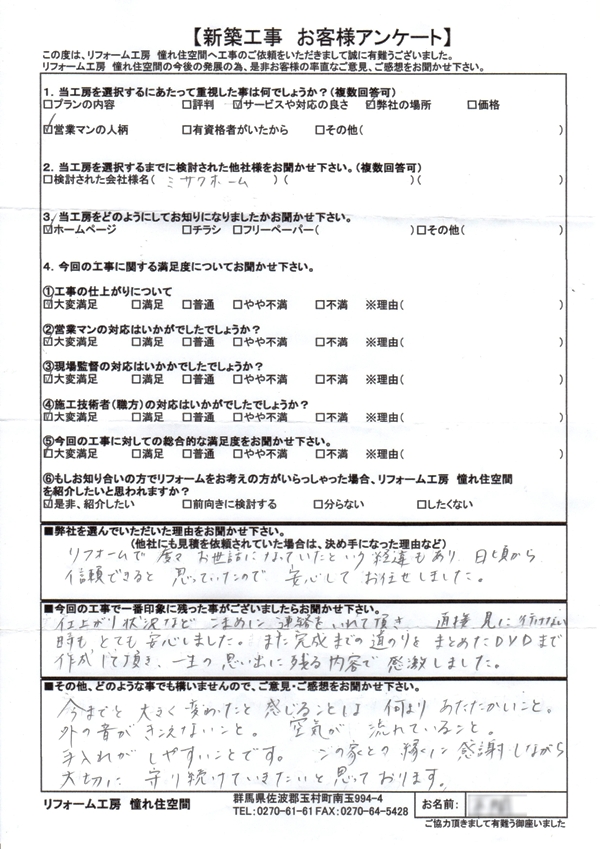 【新築工事 お客様アンケート】
この度は、リフォーム工房 憧れ住空間へ工事のご依頼をいただきまして誠に有難うございました。
リフォーム工房 憧れ住空間の今後の発展の為、是非お客様の率直なご意見、ご感想をお聞かせ下さい。
1. 当工房を選択するにあたって重視した事は何でしょうか？(複数回答可)
□プランの内容 □評判 ☑サービスや対応の良さ ☑弊社の場所 □価格
☑営業マンの人柄 □有資格者がいたから □その他( )
2. 当工房を選択するまでに検討された他社様をお聞かせ下さい。(複数回答可)
□検討された会社様名( ミサワホーム )( )( )
3. 当工房をどのようにしてお知りになりましたかお聞かせ下さい。
☑ホームページ □チラシ □フリーペーパー( )□その他( )
4. 今回の工事に関する満足度についてお聞かせ下さい。
①工事の仕上がりについて
☑大変満足 □満足 □普通 □やや不満 □不満 ※理由( )
②営業マンの対応はいかがでしたでしょうか？
☑大変満足 □満足 □普通 □やや不満 □不満 ※理由( )
③現場監督の対応はいかかでしたでしょうか？
☑大変満足 □満足 □普通 □やや不満 □不満 ※理由( )
④施工技術者(職方)の対応はいかがでしたでしょうか？
☑大変満足 □満足 □普通 □やや不満 □不満 ※理由( )
⑤今回の工事に対しての総合的な満足度をお聞かせ下さい。
☑大変満足 □満足 □普通 □やや不満 □不満 ※理由( )
⑥もしお知り合いの方でリフォームをお考えの方がいらっしゃった場合、リフォーム工房 憧れ住空間
を紹介したいと思われますか？
☑是非、紹介したい □前向きに検討する □分らない □したくない
■弊社を選んでいただいた理由をお聞かせ下さい。
(他社にも見積を依頼されていた場合は、決め手になった理由など)
リフォームで 度々 お世話になっていたという経違もあり 日頃から
信頼できると 思っていたので 安心してお任せしました。
■今回の工事で一番印象に残った事がございましたらお聞かせ下さい。
仕上がり状況など こまめに 連絡をいれて頂き 直接 見に行けない
時も、とても 安心しました。また 完成までの 道のりを まとめたDVDまで
作成して頂き、一生の 思い出に 残る内容で 感激しました。
■その他、どのような事でも構いませんので、ご意見・ご感想をお聞かせ下さい。
今までと 大きく 変わったと 感じることは 何より あたたかいこと。
外の音が きこえないこと。 空気が 流れていること。
手入れが しやすいことです。 この家との 縁に 感謝しながら
大切に 守り続けていきたいと思っております。
リフォーム工房 憧れ住空間 群馬県佐波郡玉村町南玉994-4
TEL:0270-61-61 FAX:0270-64-5428
お名前:
ご協力頂きまして有難う御座いました